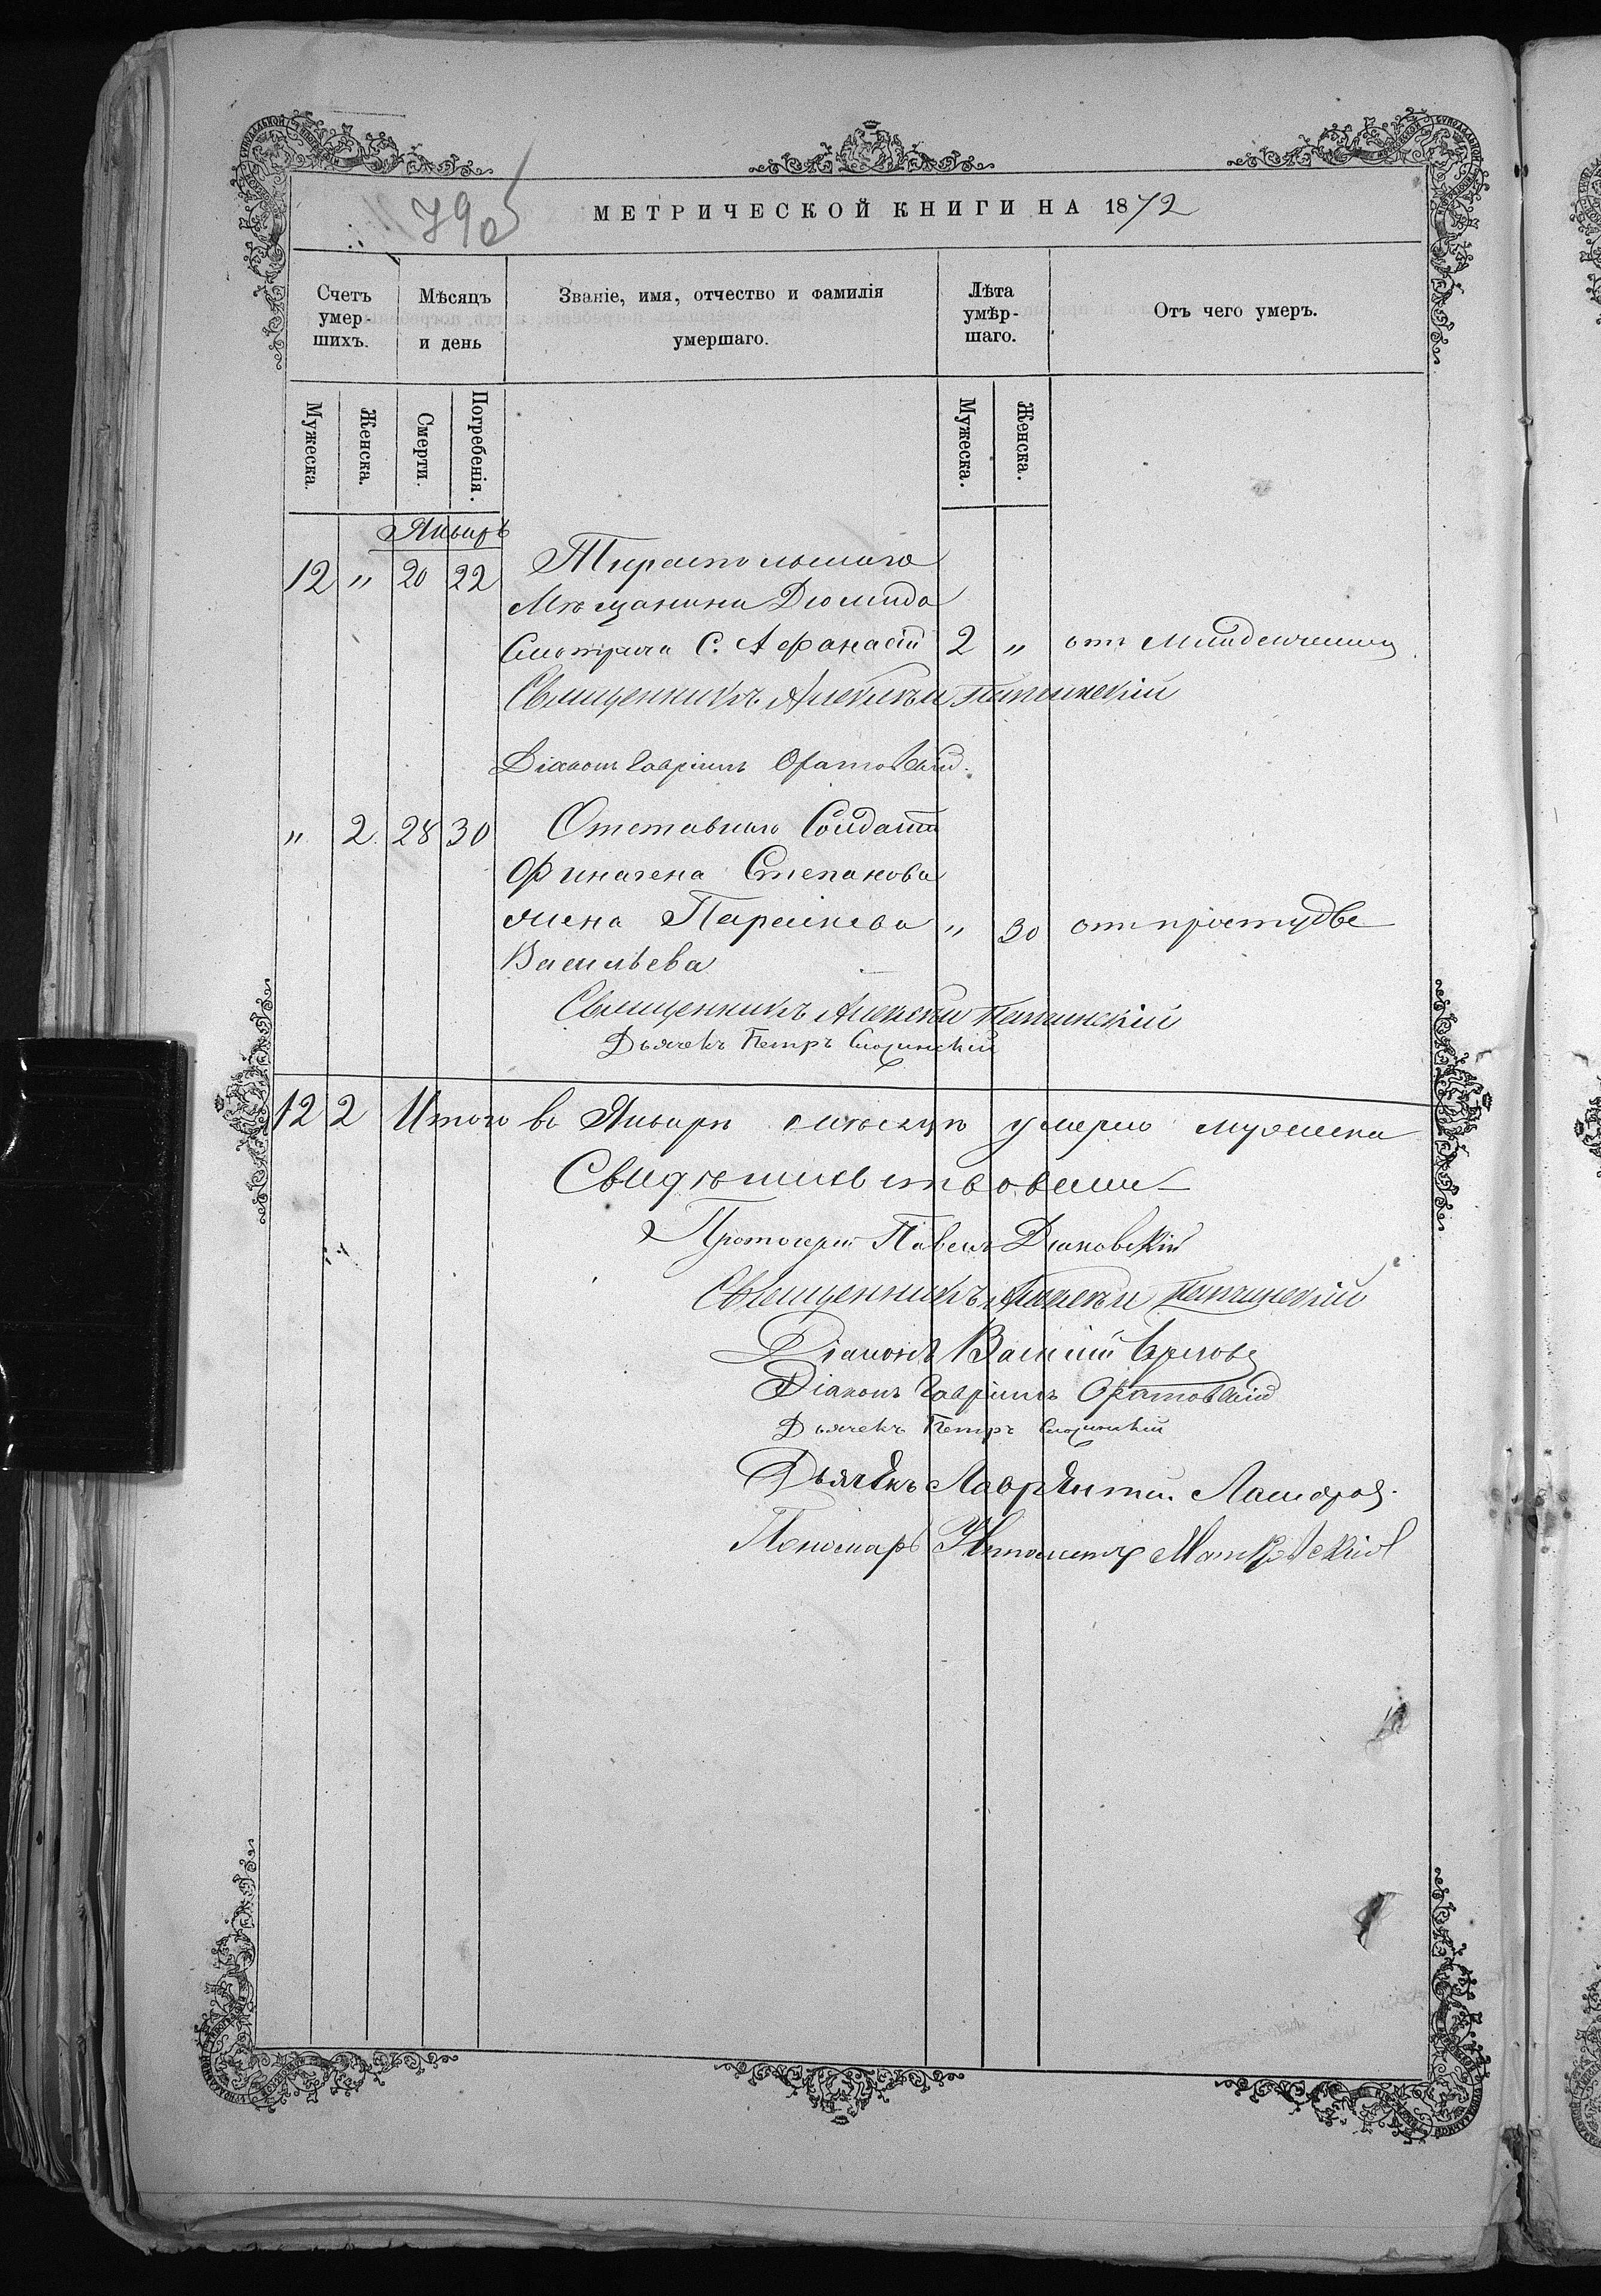 790
МЕТРИЧЕСКОЙ КНИГИ НА 1872
Счетъ умер- шихъ.
Мѣсяцъ и день
Званіе, имя, отчество и фамилія умершаго.
Лѣта умѣр- шаго.
Отъ чего умеръ.
Мужеска.
Женска.
Смерти.
Погребенія.
Мужеска.
Женска.
Январь
12 " 20 22 Тираспольскаго
Мѣщанина Діомида
С. Афанасій 2 " отъ
Священникъ Алексѣй
Діаконъ Гавріилъ
" 2 28 30 Отставнаго Солдата
Степанова
жена Параскева " 30 отъ простудве
Васильева
Священникъ Алексѣй
Дьячекъ Петръ
12 2 Итого въ Январѣ мѣсяцѣ умерло мужеска
Свидѣтельствовали
Протоіерей Павелъ
Священникъ Алексѣй
Діаконъ Василій
Діаконъ Гавріилъ
Дьячекъ Петръ
Дьячекъ Лаврентій
Пономарь